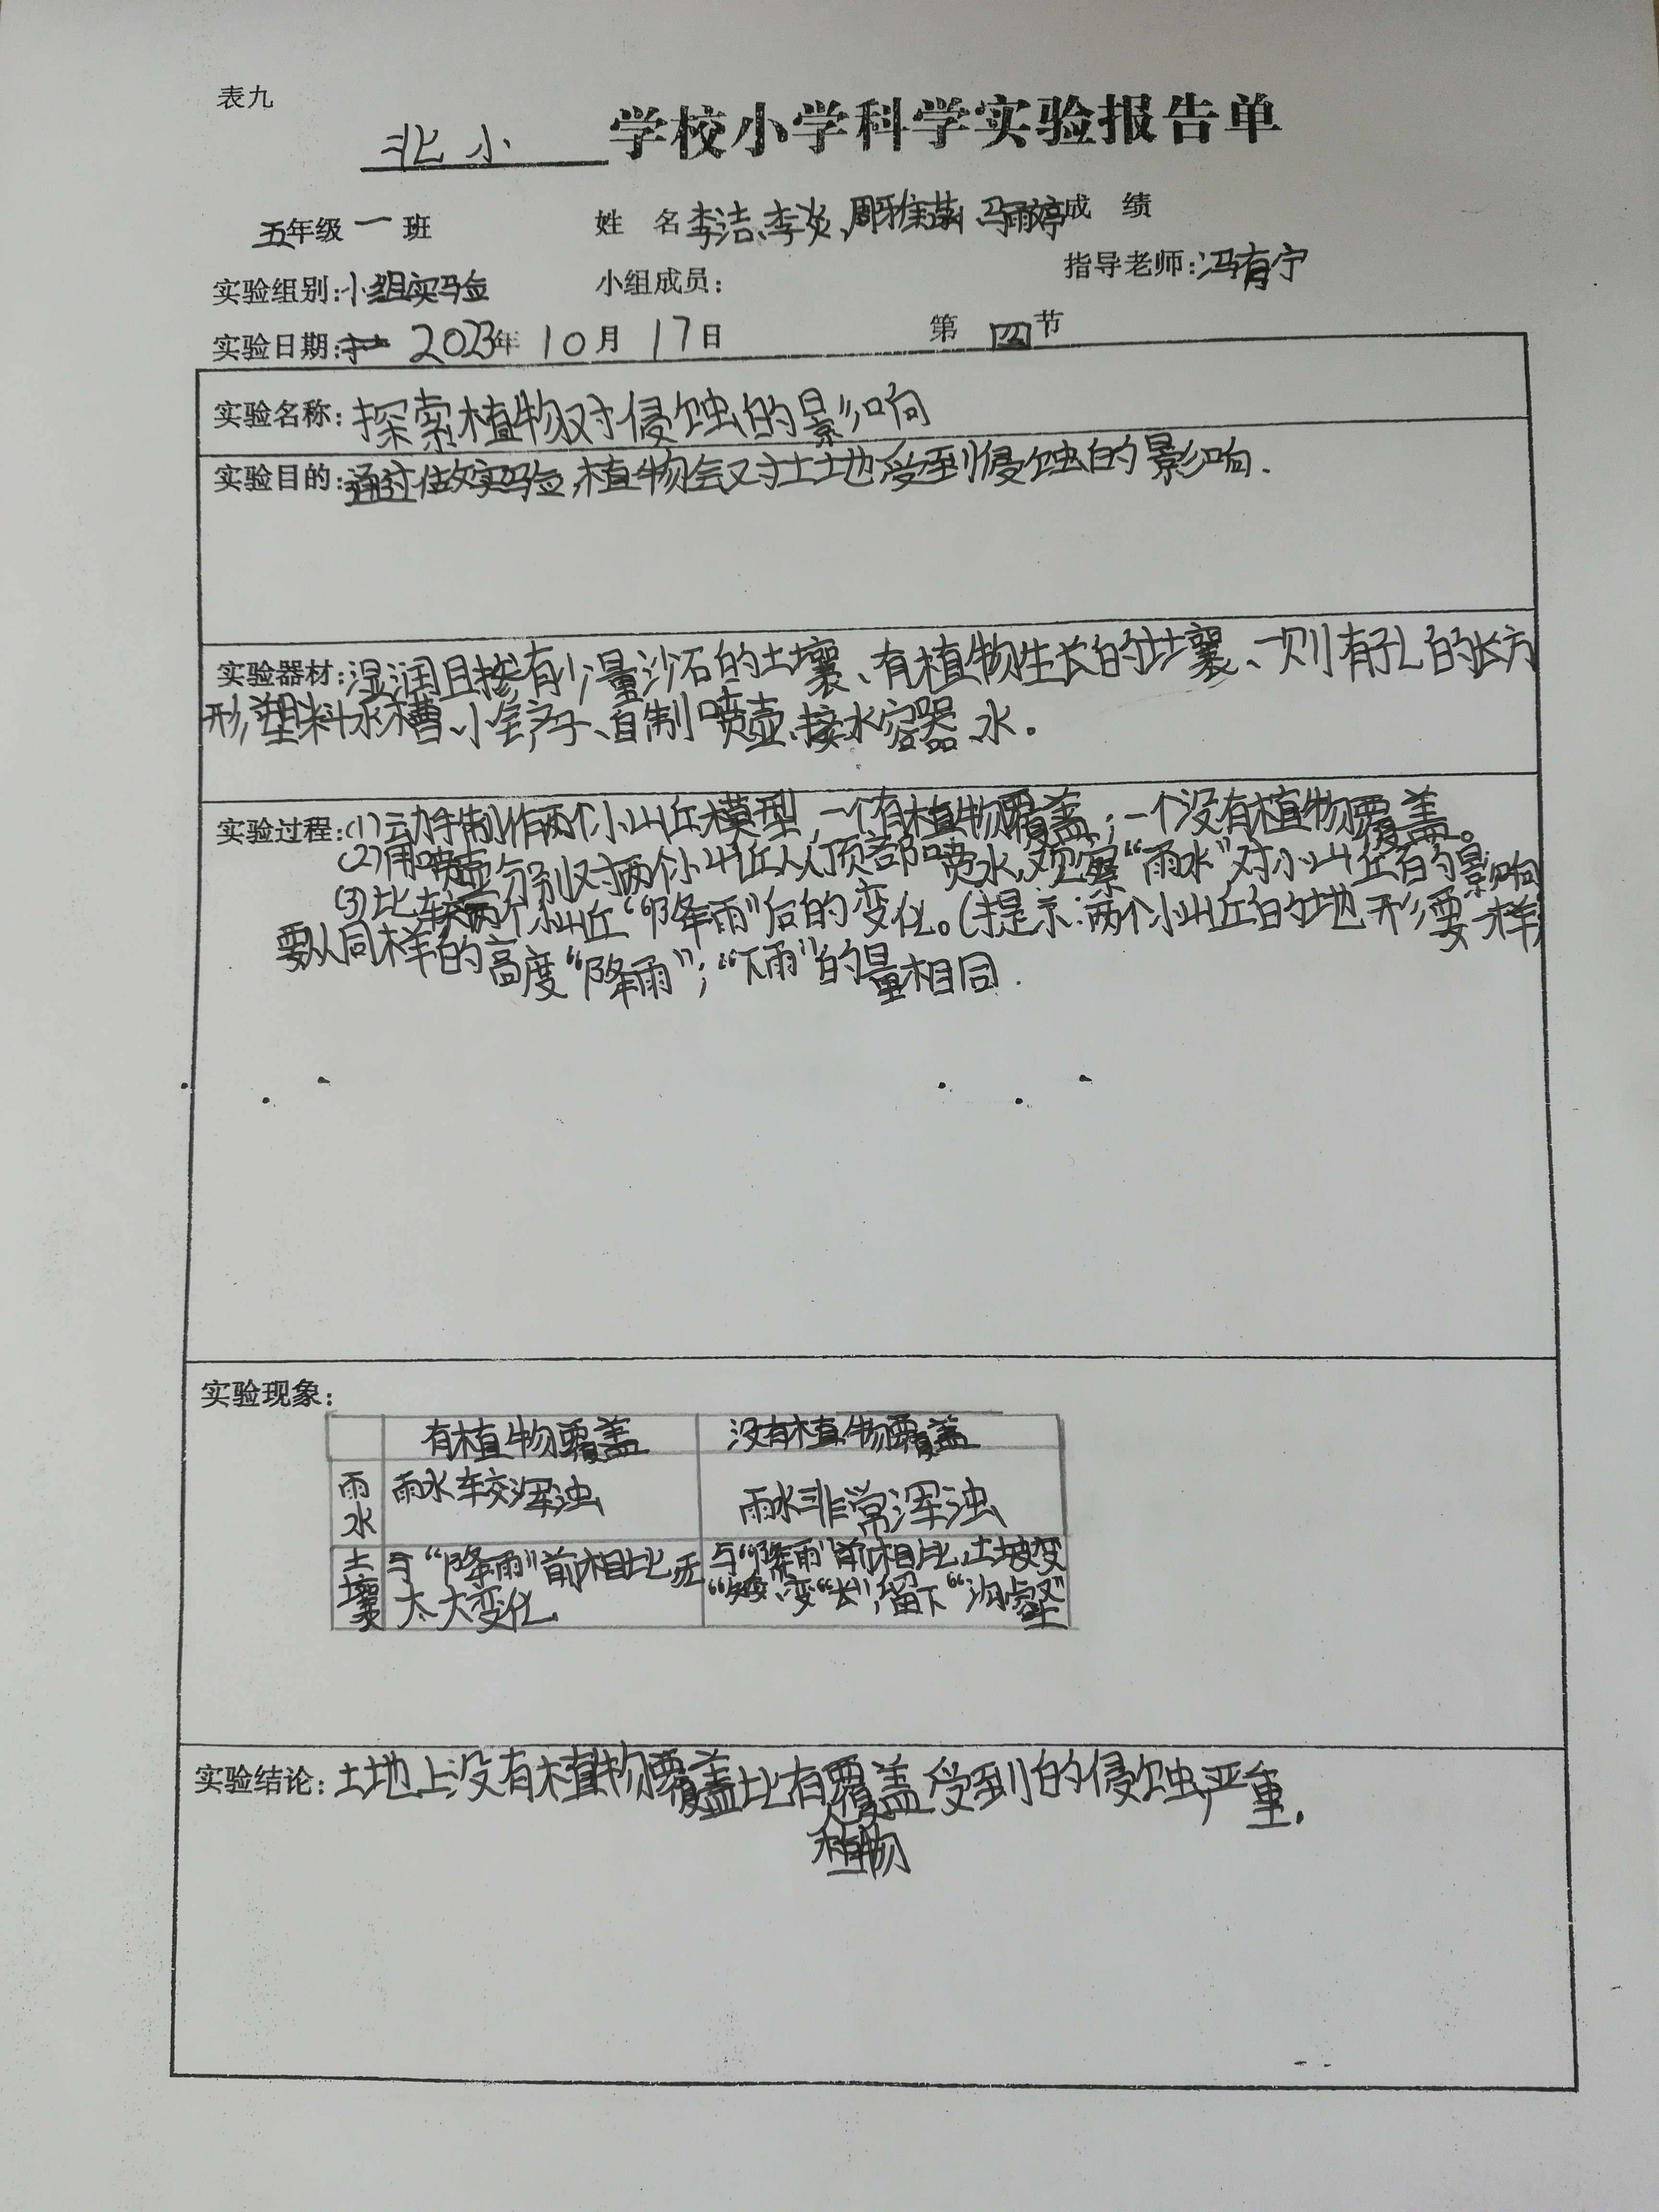 表九
北小 学校小学科学实验报告单
五年级一班 姓 名 李洁、李炎、周雅茹、马雨婷 成 绩
实验组别:小组实验 小组成员: 指导老师:冯有宁
实验日期: 2023年 10月 17日 第 四 节
实验名称:探索植物对侵蚀的影响
实验目的:通过做实验,植物会对土地受到侵蚀的影响.
实验器材:湿润且掺有少量沙石的土壤、有植物生长的土壤、一侧有孔的长方
形塑料水槽、小铲子、自制喷壶、接水容器、水。
实验过程:(1)动手制作两个小山丘模型,一个有植物覆盖;一个没有植物覆盖。
(2)用喷壶分别对两个小山丘从顶部喷水,观察“雨水”对小山丘的影响
(3)比较两个小山丘“降雨”后的变化。(提示:两个小山丘的地形要一样)
要从同样的高度“降雨”;“下雨”的量相同.
实验现象:
有植物覆盖 没有植物覆盖
雨水 雨水较浑浊 雨水非常浑浊
土壤 与“降雨”前相比,无 与“降雨”前相比,土坡变
太大变化 “矮”、变“长”,留下“沟壑”
实验结论:土地上没有植物覆盖比有覆盖受到的侵蚀严重.
植物